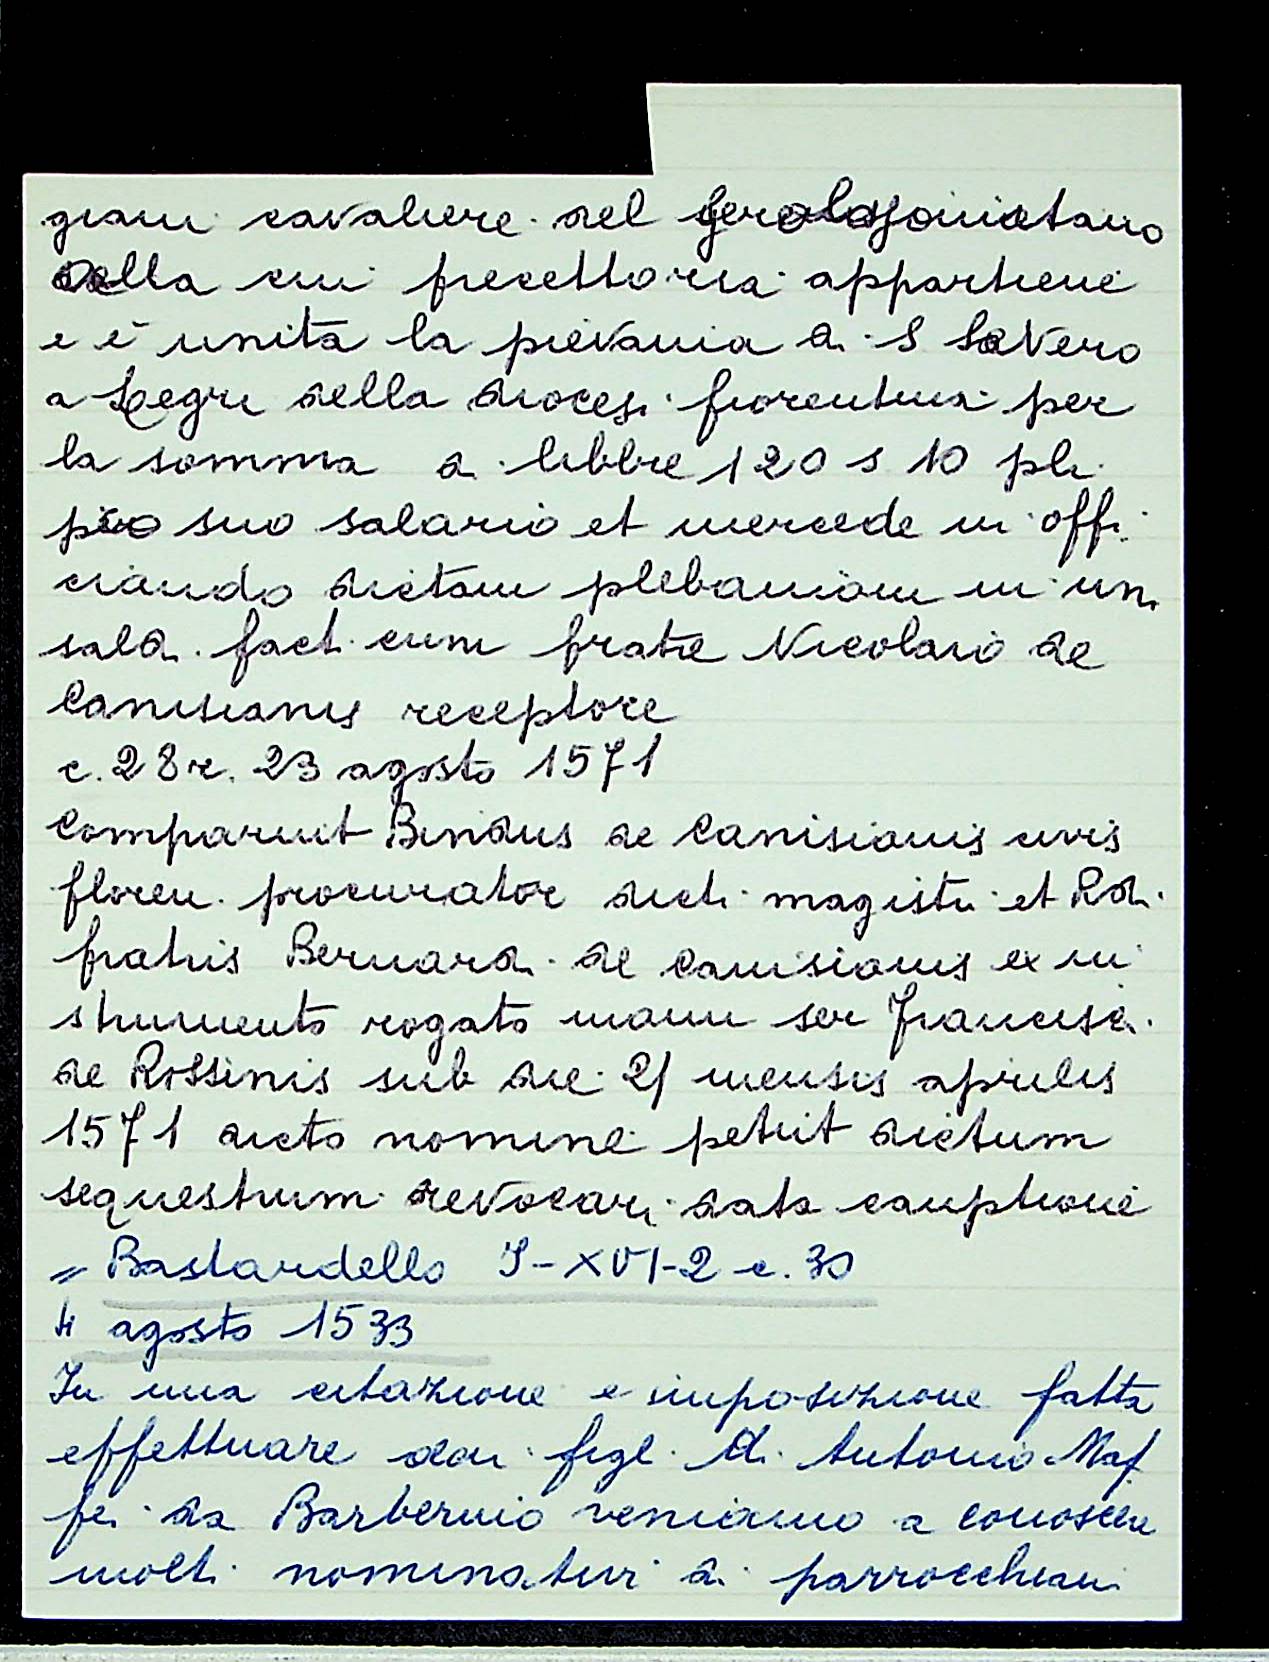 giani cavaliere del gerolosomitano
della cui precettoria appartiene
e è unita la pievania di S Savero
a Legri della diocesi fiorentina per
la somma di libbre 120 s 10 pli
pro suo salario et mercede in offi
ciando dictam plebaniam in un
sald. fact. cum fratre Nicolaio de
Canisianis receptore
c. 28r. 23 agosto 1571
Comparuit Bindus de Canisianis civis
floren. procurator dicti magistri et Rdi.
fratris Bernardi de Canisianis ex in
strumento rogato manu ser Francisci
de Rossinis sub die 21 mensis aprilis
1571 dicto nomine petiit dictum
sequestrum revocari data cauptione
= Bastardello I-XVI-2 c. 30
4 agosto 1533
In una citazione e imposizione fatta
effettuare dai figli di Antonio Maf
fei da Barberino veniamo a conoscere
molti nominativi di parrocchiani